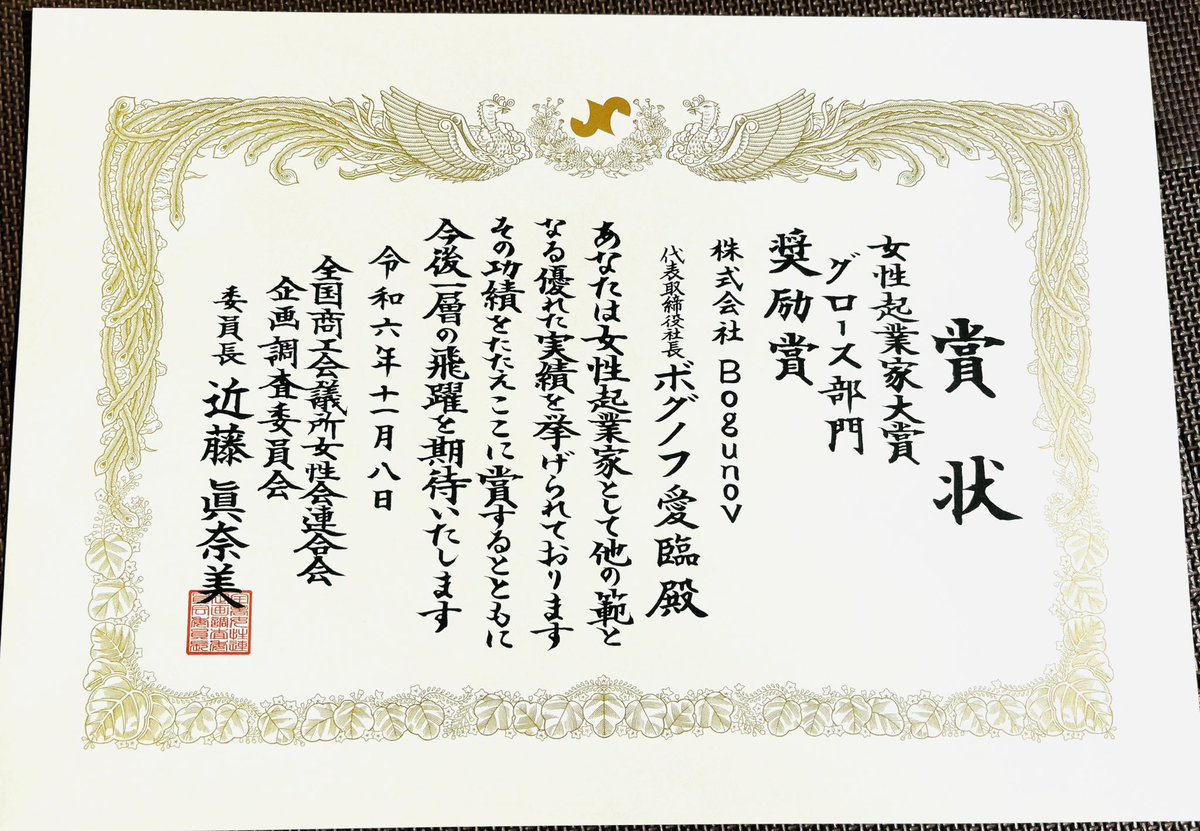 賞状
女性起業家大賞
グロース部門
奨励賞
株式会社 Bogunov
代表取締役社長 ボグノフ愛臨殿
あなたは女性起業家として他の範と
なる優れた実績を挙げられております
その功績をたたえここに賞するとともに
今後一層の飛躍を期待いたします
令和六年十一月八日
全国商工会議所女性会連合会
企画調査委員会
委員長 近藤眞奈美